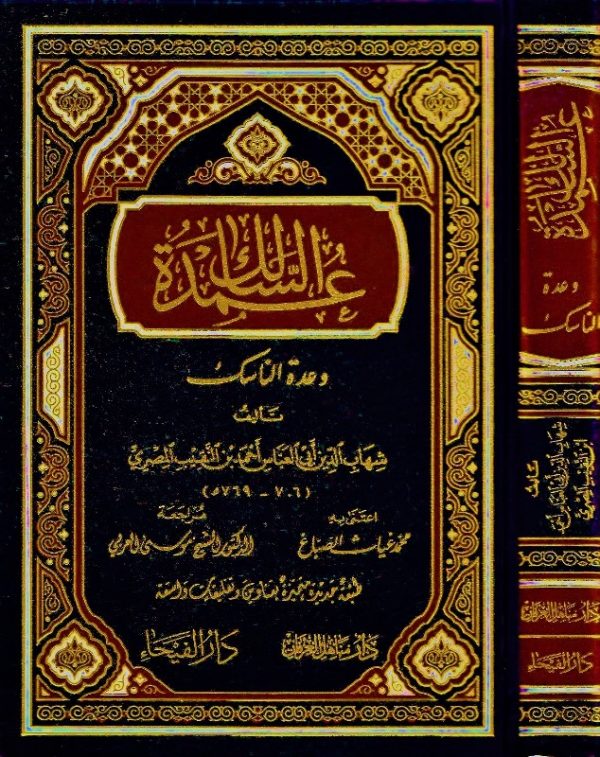 عُمدَةُ السَّالِك
وعدة الناسك
تأليف
شهاب الدين أبي العباس أحمد بن النقيب المصري
(٧٠٦ - ٧٦٩هـ)
اعتنى به
محمد غياث الصباغ
مراجعة
الدكتور الشيخ موسى العربي
طبعة جديدة بعناوين وتعليقات واسعة
دار مناهل العرفان
دار الفيحاء
عمدة السالك
وعدة
الناسك
تأليف
شهاب الدين أبي العباس أحمد
ابن النقيب المصري
دار مناهل العرفان
دار الفيحاء